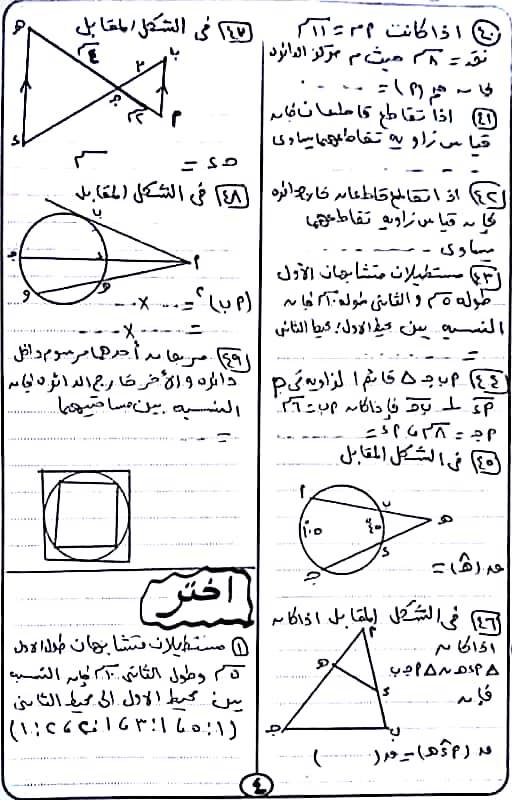 ٤٠ اذا كانت م٢ = ١١سم
نقه = ٨سم حيث م مركز الدائره
فإنه قم (٢) = - - - -
٤١ اذا تقاطع قاطعان فإنه
قياس زاويه تقاطعهما يساوى
- - - -
٤٢ اذا تقاطع قاطعان خارج دائره
فإنه قياس زاويه تقاطعهما
يساوى - - - - - -
٤٣ مستطيلات متشابهان الأول
طوله ٥سم والثانى طوله ١٠سم فإنه
النسبه بين محيط الاول : محيط الثانى
= - - - -
٤٤ ٢بجـ △ قائم الزاويه فى ٢
٢ء ⊥ بجـ فإذا كانه ٢ب = ٦سم
٢جـ = ٨سم ٢ء =
٤٥ فى الشكل المقابل
٢
ب
١٠٥
٤٥
هـ
ء
جـ
قه (هـ) =
٤٦ فى الشكل المقابل اذا كانه
اذا كانه
△ ٢ءهـ ~ △ ٢جـب
فإنه
٢
هـ
ء
جـ
ب
قه (٢ءهـ) = قه ( )
٤٧ فى الشكل المقابل
هـ
٤سم
٢
ب
جـ
٢سم
٢
ء
هـء = سم
٤٨ فى الشكل المقابل
ب
جـ
ء
٢
و
هـ
(٢ب)٢ = - - - × - - -
= - - - × - - -
٤٩ مربعانه أحدهما مرسوم داخل
دائره والأخر خارج الدائره فإنه
النسبه بين مساحتيهما
=
اختر
١ مستطيلات متشابهان طول الاول
٥سم وطول الثانى ١٠سم فإنه النسبه
بين محيط الاول الى محيط الثانى
(١:٥ ، ٣:١ ، ١:٢ ، ٢:١)
٤